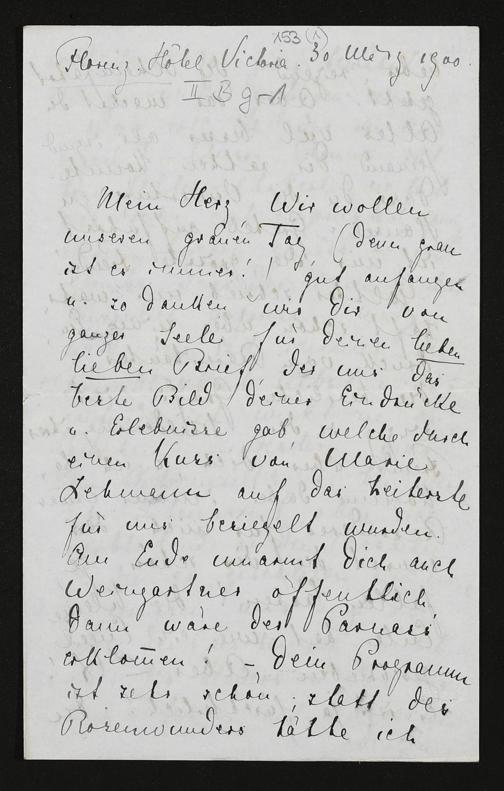 153 (1)
Florenz Hôtel Victoria. 30 März 1900.
II B g-1
Mein Herz Wir wollen
unseren grauen Tag (denn grau
ist es immer!) gut anfangen
u. so danken wir Dir von
ganzer Seele für deinen lieben
lieben Brief der uns das
beste Bild deiner Eindrücke
u. Erlebnisse gab welche durch
einen Kuss von Marie
Lehmann auf das heiterste
für uns besiegelt wurden.
Am Ende umarmt Dich auch
Weingartner öffentlich
dann wäre der Parnass
erklommen! – Dein Programm
ist sehr schön; statt des
Rosenwunders hätte ich